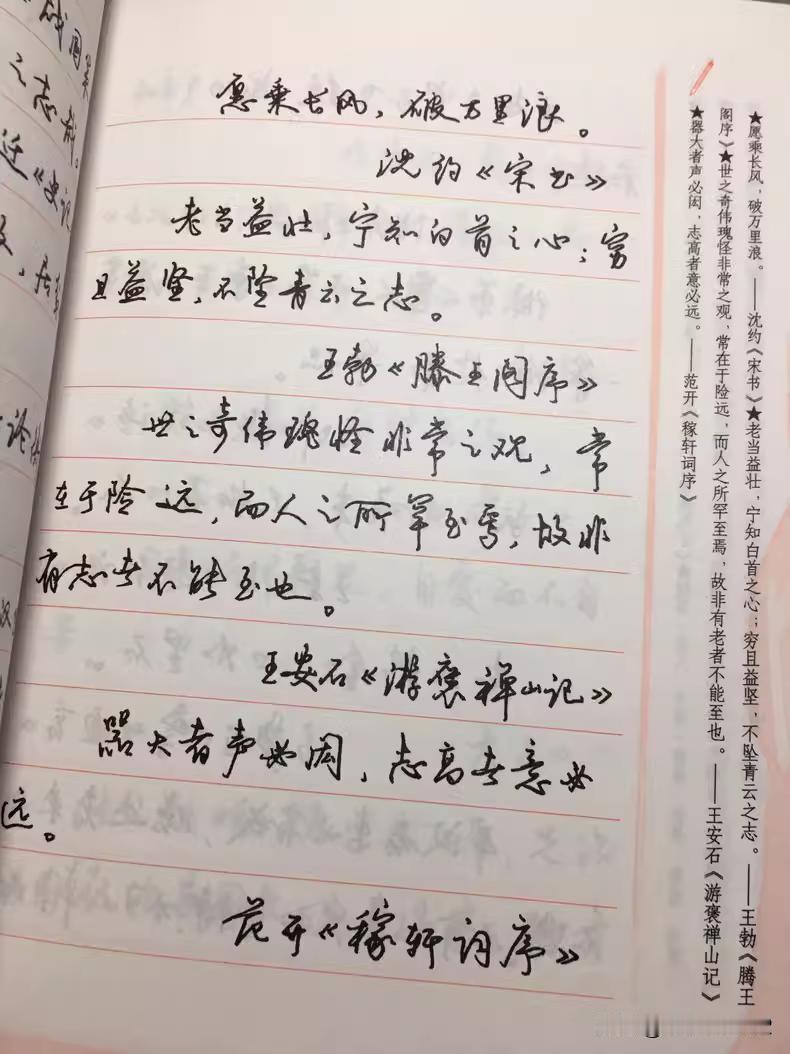 愿乘长风，破万里浪。
沈约《宋书》
老当益壮，宁知白首之心；穷
且益坚，不坠青云之志。
王勃《滕王阁序》
世之奇伟瑰怪非常之观，常
在于险远，而人之所罕至焉，故非
有志者不能至也。
王安石《游褒禅山记》
器大者声必闳，志高者意必
远。
范开《稼轩词序》
★愿乘长风，破万里浪。——沈约《宋书》★老当益壮，宁知白首之心；穷且益坚，不坠青云之志。——王勃《腾王
阁序》★世之奇伟瑰怪非常之观，常在于险远，而人之所罕至焉，故非有老者不能至也。——王安石《游褒禅山记》
★器大者声必闳，志高者意必远。——范开《稼轩词序》
战国策
之志哉。
迁《史记